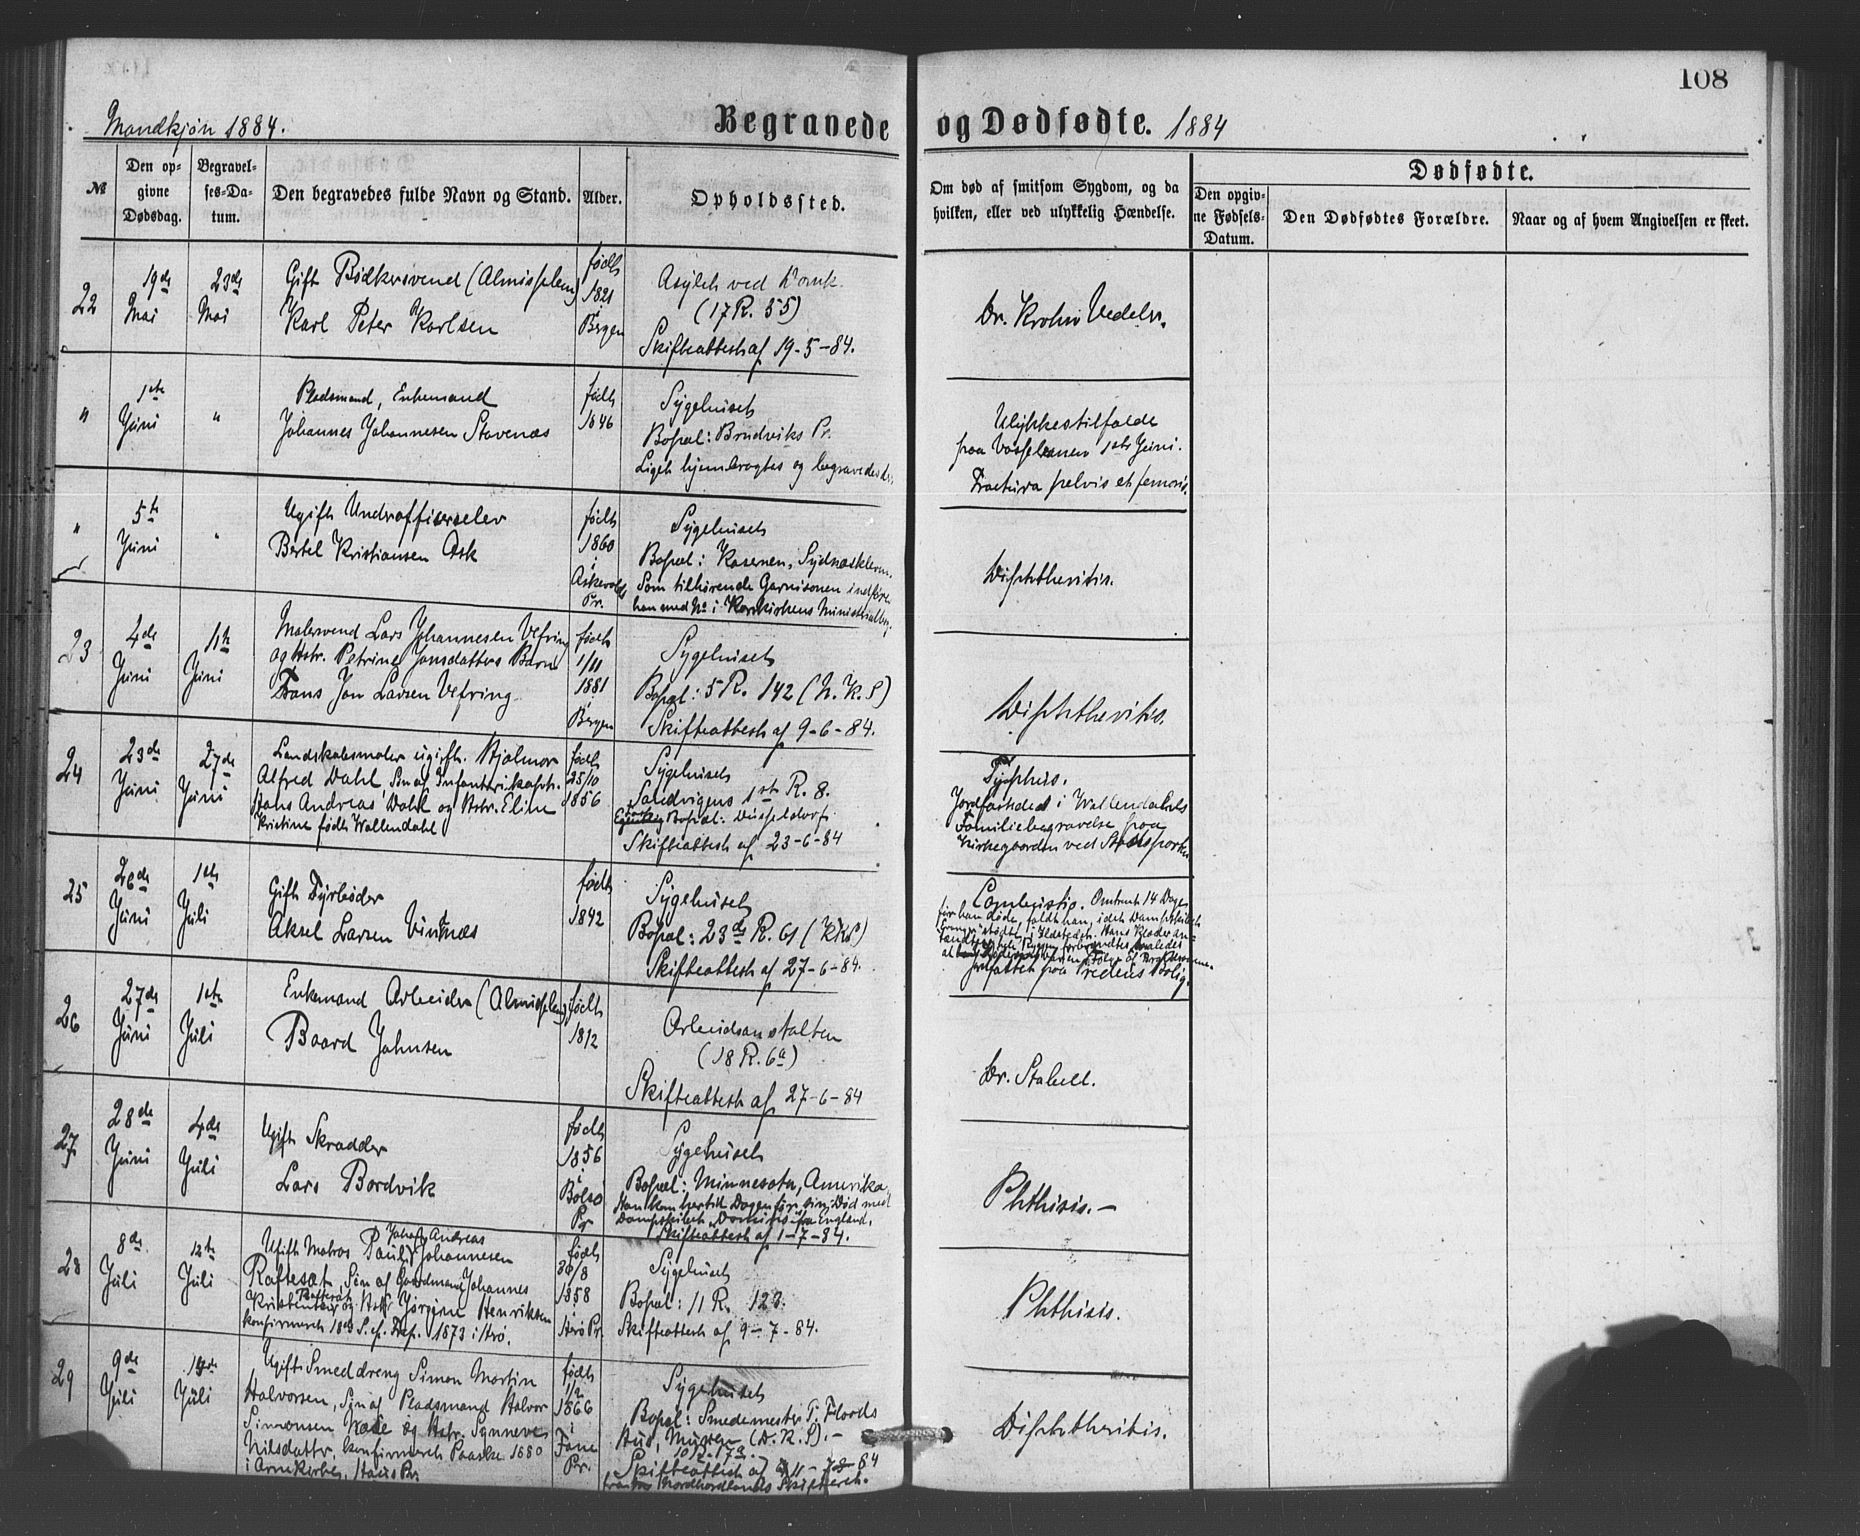 108
Mandkjøn 1884.
Begravede og Dødfødte. 1884
№
Den opgivne Dødsdag.
Begravelses-Datum.
Den begravedes fulde Navn og Stand.
Alder.
Opholdssted.
Om død af smitsom Sygdom, og da hvilken, eller ved ulykkelig Hændelse.
Dødfødte.
Den opgivne Fødsels-Datum.
Den Dødfødtes Forældre.
Naar og af hvem Angivelsen er skeet.
22
19de Mai
23de Mai
Gift Bødkersvend (Almisselem)
Karl Peter Karlsen
født 1821 i Bergen
Asylet ved Domk.
(17 R. 55)
Skifteattest af 19-5-84.
Dr. Krohn Vedeler.
"
1ste Juni
"
Pladsmand, Enkemand
Johannes Johannesen Stavenæs
født 1846
Sygehuset
Bopæl: Brudviks Pr.
Liget hjembragtes og begravedes der.
Ulykkestilfælde
paa Vossebanen 1ste Juni.
Fractura pelvis et femoris.
"
5te Juni
"
Ugift Underofficerselev
Bertel Kristiansen Ask
født 1860 i Askevolds Pr.
Sygehuset
Bopæl: Kasernen, Sydnæskleven.
Som tilhørende Garnisonen indføres
han med № i Korskirkens Ministerialbog.
Diphtheritis.
23
4de Juni
11te Juni
Malersvend Lars Johannesen Vefring
og Hstr. Petrine Jonsdatters Barn
Frans Jon Larsen Vefring
født 1/11 1881 i Bergen
Sygehuset
Bopæl: 5 R. 142 (N. K. S)
Skifteattest af 9-6-84.
Diphtheritis.
24
23de Juni
27de Juni
Landskabsmaler ugift. Hjalmar
Alfred Dahl, Søn af Infanterikaptn.
Hans Andreas Dahl og Hstr. Eline
Kristine født Wallendahl
født 25/10 1856
Sygehuset
Sandvigens 1ste R. 8.
Bopæl: Düsseldorf
Skifteattest af 23-6-84
Typhus.
Jordfæstedes i Wallendahls
Familiebegravelse paa
Kirkegaarden ved Stadsporten
25
26de Juni
1ste Juli
Gift Fyrbøder
Aksel Larsen Vindnæs
født 1842
Sygehuset
Bopæl: 23de R. 61 (KKS)
Skifteattest af 27-6-84.
Combustio. Omtrent 14 Dage
før han døde, faldt han, idet Dampskibet
stødte, i Ildstedet. Hans Klæder antændtes,
hele Ryggen forbrændtes saaledes
at Døden
Forfattet paa Prestens Bolig.
26
27de Juni
1ste Juli
Enkemand Arbeider (Almisselem)
Baard Johnsen
født 1812
Arbeidsanstalten
(18 R. 6a)
Skifteattest af 27-6-84
Dr. Stabell.
27
28de Juni
4de Juli
Ugift Skrædder
Lars Bordvik
født 1856 i Bolsø Pr
Sygehuset
Bopæl: Minnesota, Amerika
Han kom hertil Dagen før sin Død med
Dampskibet "Domino" fra England.
Skifteattest af 1-7-84.
Phthisis.-
28
8de Juli
12te Juli
Ugift Matros Paul Johan Andreas Johannesen
Raftesæt, Søn af Gaardmand Johannes
Kristensen Raftesæt og Hstr Jørgine Henriksen
konfirmeret 18de S. ef. Tref. 1873 i Herø.
født 30/8 1858 i Herø Pr.
Sygehuset
Bopæl: 11 R. 123.
Skifteattest af 9-7-84.
Phthisis.
29
9de Juli
Juli
Ugift Smeddreng Simon Martin
Halvorsen, Søn af Pladsmand Halvor
Simonsen Kæde og Hstr. Synneve
Nilsdatter, konfirmeret Paaske 1880
i Arnekirken, Haus Pr.
født 1/2 1866 i Fane Pr.
Sygehuset
Bopæl: Smedemester T. Floods
Hus, Muren (D. K. S).-
10 R. 17a.
Skifteattest af 11-7-84
fra Nordhordlands Skifteret.
Diphtheritis.